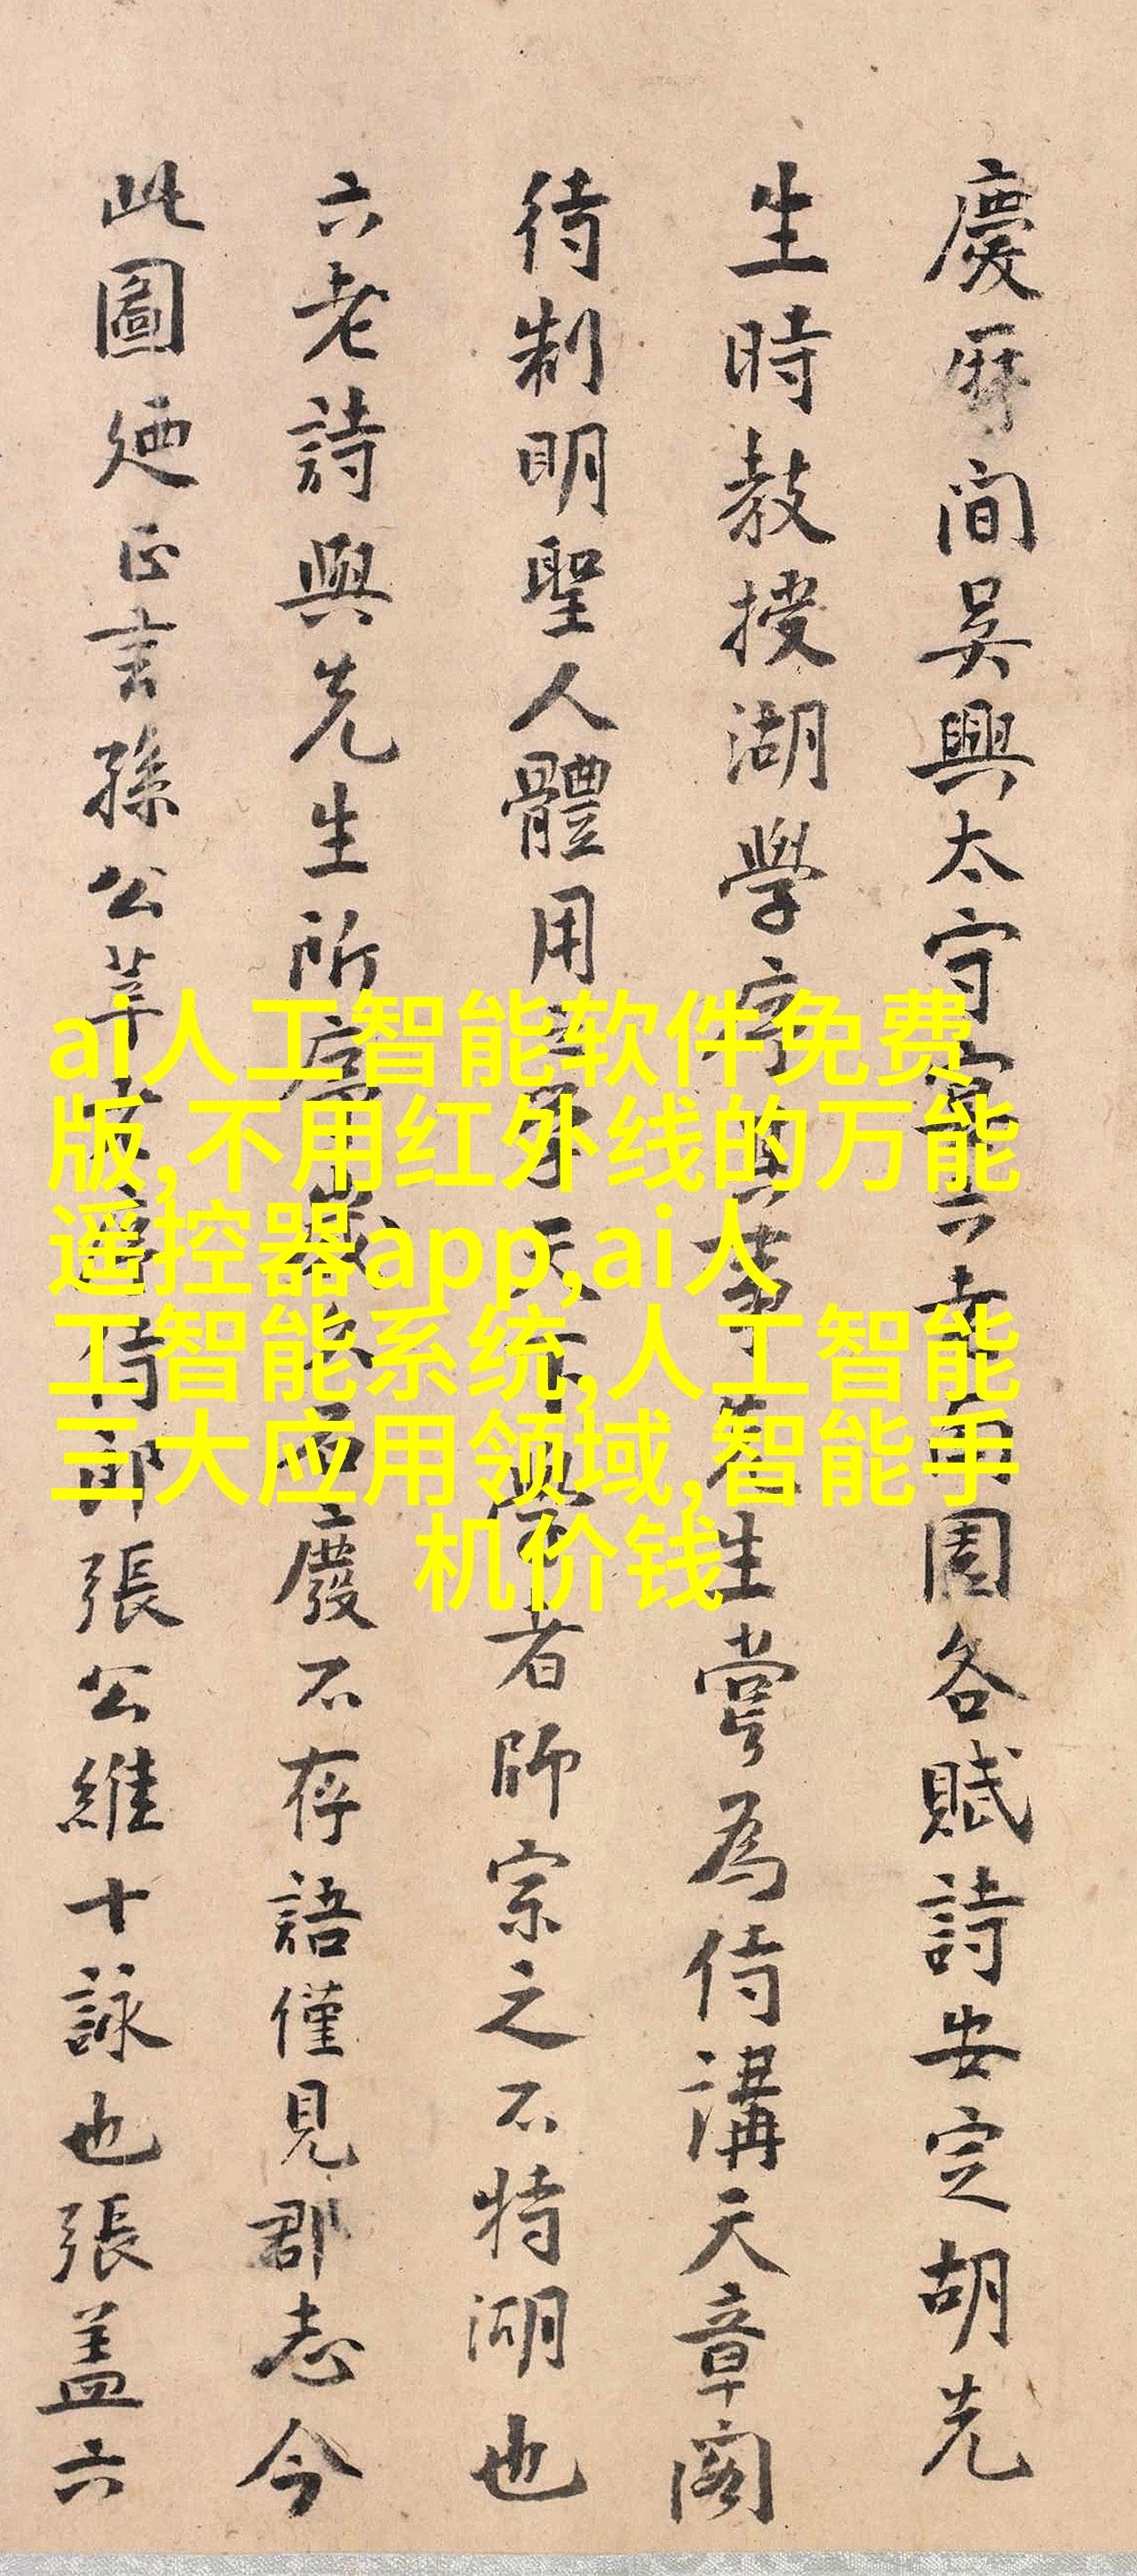 慶曆間吳興太守宴六老南園各賦詩安定胡先
生時教授湖學序其事蓋先生嘗為侍講天章閣
待制明聖人體用天下學者師宗之不特湖也
六老詩與先生所序歲久石廢不存語僅見郡志今
此圖廼正言孫公莘老序侍郎張公維十詠也張蓋六
ai人工智能软件免费
版,不用红外线的万能
遥控器app,ai人
工智能系统,人工智能
三大应用领域,智能手
机价钱